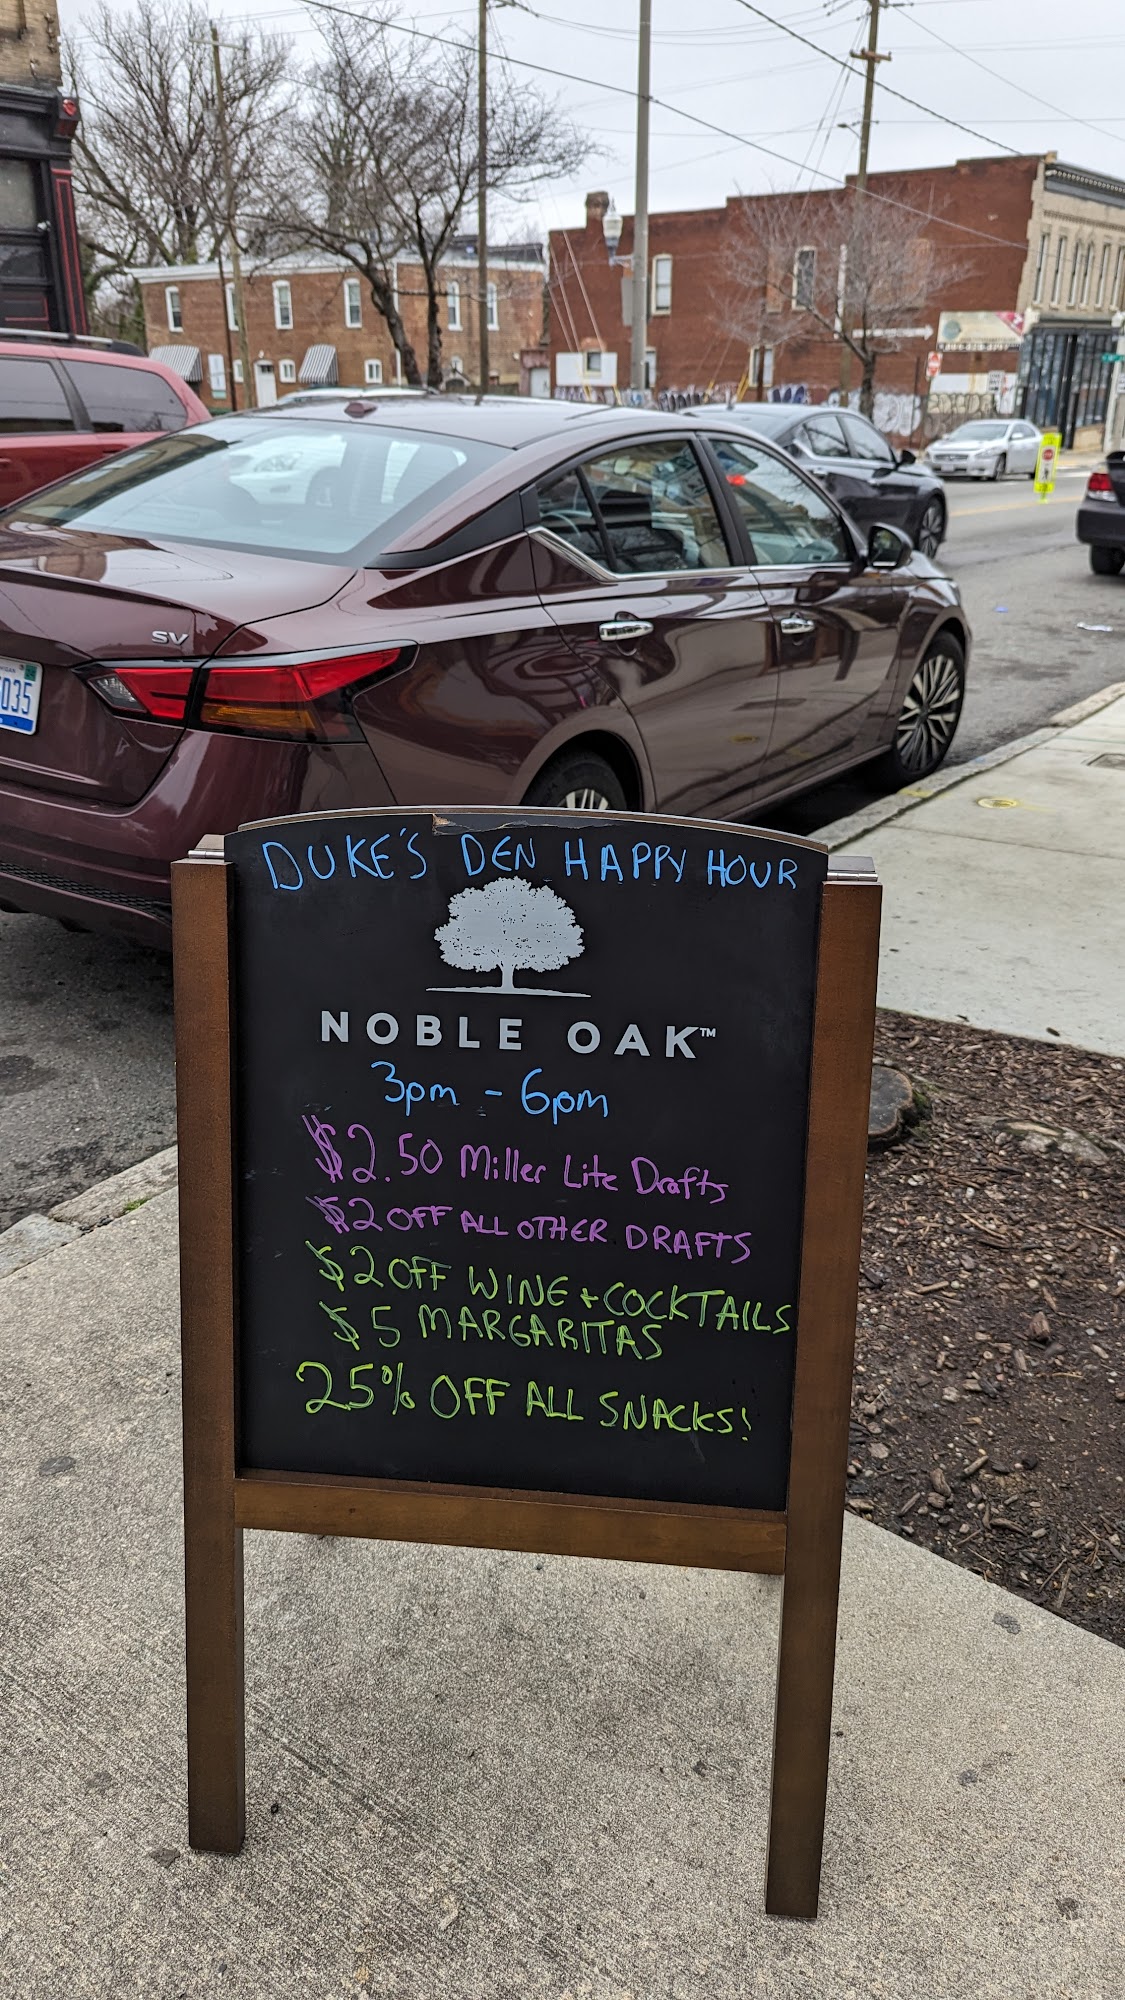 SV
035
DUKE'S DEN HAPPY HOUR
NOBLE OAK™
3pm - 6pm
$2.50 Miller Lite Drafts
$2 OFF ALL OTHER DRAFTS
$2 OFF WINE + COCKTAILS
$5 MARGARITAS
25% OFF ALL SNACKS!